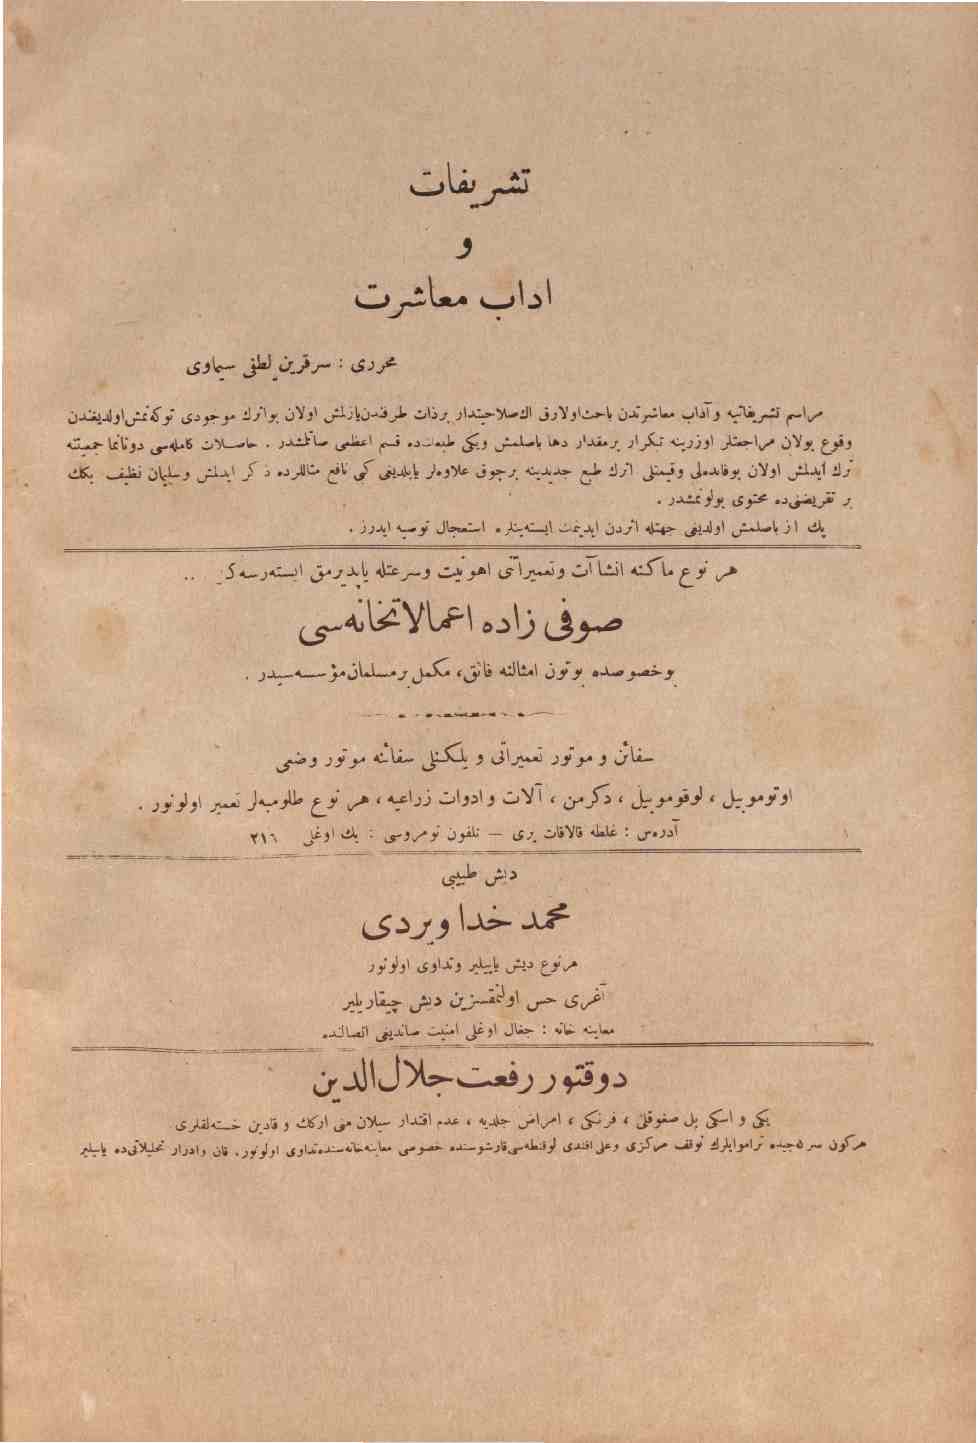 تشریفات
و
اداب معاشرت
محرری : سرقرین لطفی سیماوی
مراسم تشریفاتیه و آداب معاشرتدن باحث اولارق اك صلاحیتدار برذات طرفندن یازلمش اولان بواثرك موجودی توكه‌نمش اولدیغندن
وقوع بولان مراجعتلر اوزرینه تكرار برمقدار دها باصلمش ویكی طبعنده قسم اعظمی صاتلمشدر . حاصلات كامله‌سی دونانما جمعیتنه
ترك ایدلمش اولان بوفائده‌لی وقیمتلی اثرك طبع جدیدینه برچوق علاوه‌لر یاپلدیغی كبی نافع مثاللرده ذكر ایدلمش وسلیمان نظیف بكك
بر تقریضنی‌ده محتوی بولونمشدر .
پك از باصلمش اولدیغی جهتله اثردن ایدینمك ایسته‌ینلره استعجال توصیه ایدرز .
هر نوع ماكنه انشاآت وتعمیراتنی اهونیت وسرعتله یاپدیرمق ایسته‌رسه‌كز ..
صوفی زاده اعمالاتخانه‌سی
بوخصوصده بوتون امثالنه فائق، مكمل برمسلمان مؤسسه‌سیدر .
سفائن و موتور تعمیراتی و یلكنلی سفائنه موتور وضعی
اوتوموبیل ، لوقوموبیل ، دكرمن ، آلات وادوات زراعیه ، هر نوع طلومبه‌لر تعمیر اولونور .
آدره‌س : غلطه قالافات یری — تلفون نومروسی : بك اوغلی ٢١٦
دیش طبیبی
محمد خدا ویردی
هرنوع دیش یاپیلیر وتداوی اولونور
آغری حس اولنمقسزین دیش چیقاریلیر
معاینه خانه : جغال اوغلی امنیت صاندیغی اتصالنده
دوقتور رفعت جلال الدین
یكی و اسكی بل صغوقلغی ، فرنكی ، امراض جلدیه ، عدم اقتدار سیلان منی اركك و قادین خسته‌لقلری
هركون سركه‌جیده تراموایلرك توقف مركزی وعلی افندی لوقنطه‌سی قارشوسنده خصوصی معاینه‌خانه‌سنده تداوی اولونور. قان وادرار تحلیلاتی‌ده یاپیلیر